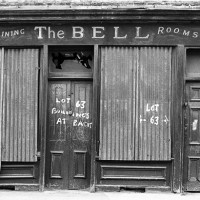 DINING The BELL ROOMS
LOT 63
BUILDINGS
AT BACK
LOT
63